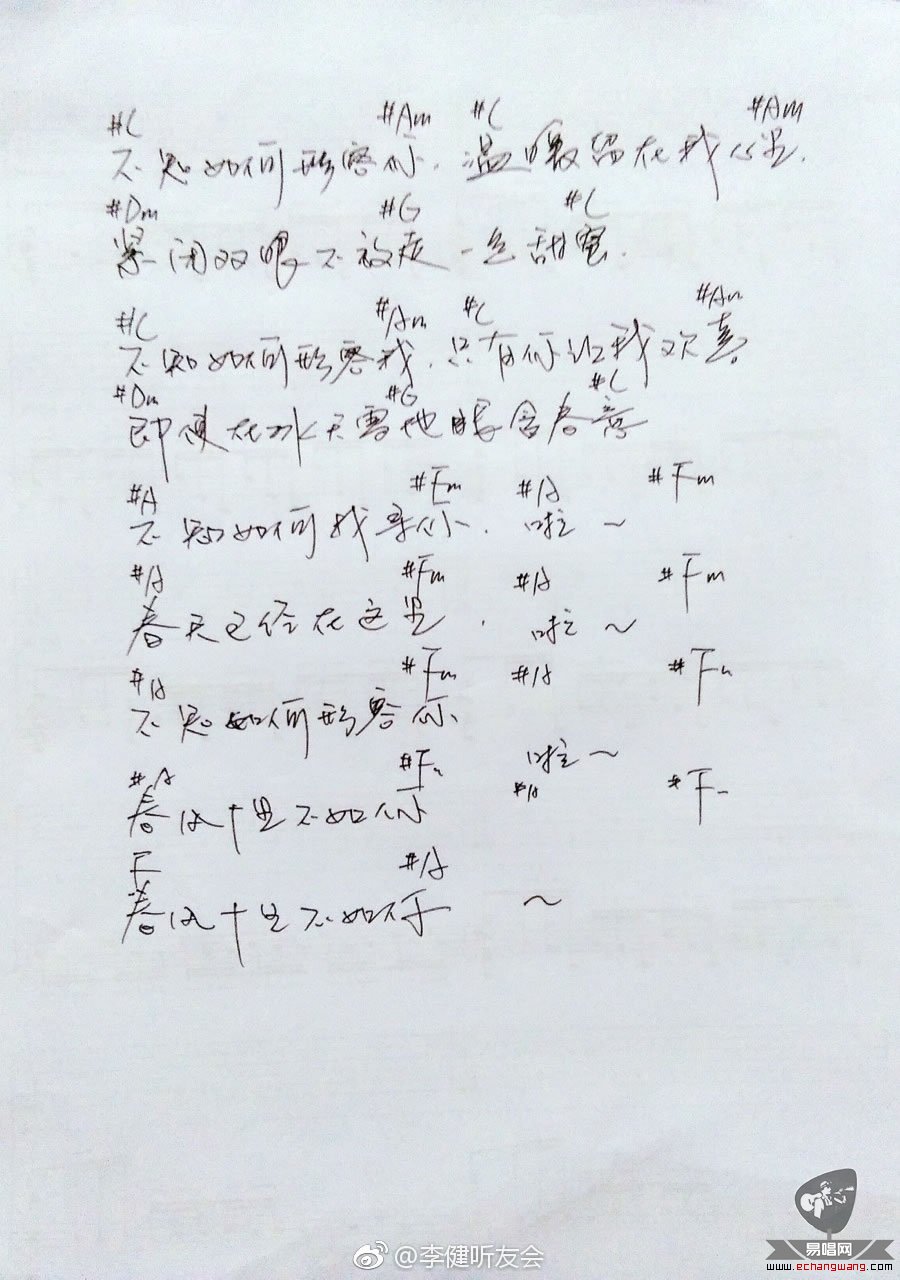 #C #Am #C #Am
不知如何形容你.温暖留在我心里.
#Dm #G #C
紧闭双眼不放走一丝甜蜜.
#C #Am #C #Am
不知如何形容我.只有你让我欢喜.
#Dm #G #C
即使在冰天雪地眼含春意
#A #Fm #A #Fm
不知如何找寻你.啦~
#A #Fm #A #Fm
春天已经在这里.啦~
#A #Fm #A #Fm
不知如何形容你
啦~
#A #Fm #A #Fm
春风十里不如你
F #A
春风十里不如你 ~
@李健听友会
易唱网
www.echangwang.com